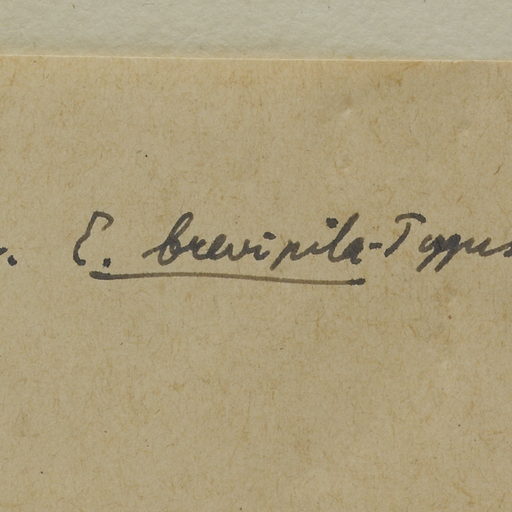 . E. brevipila-Typus